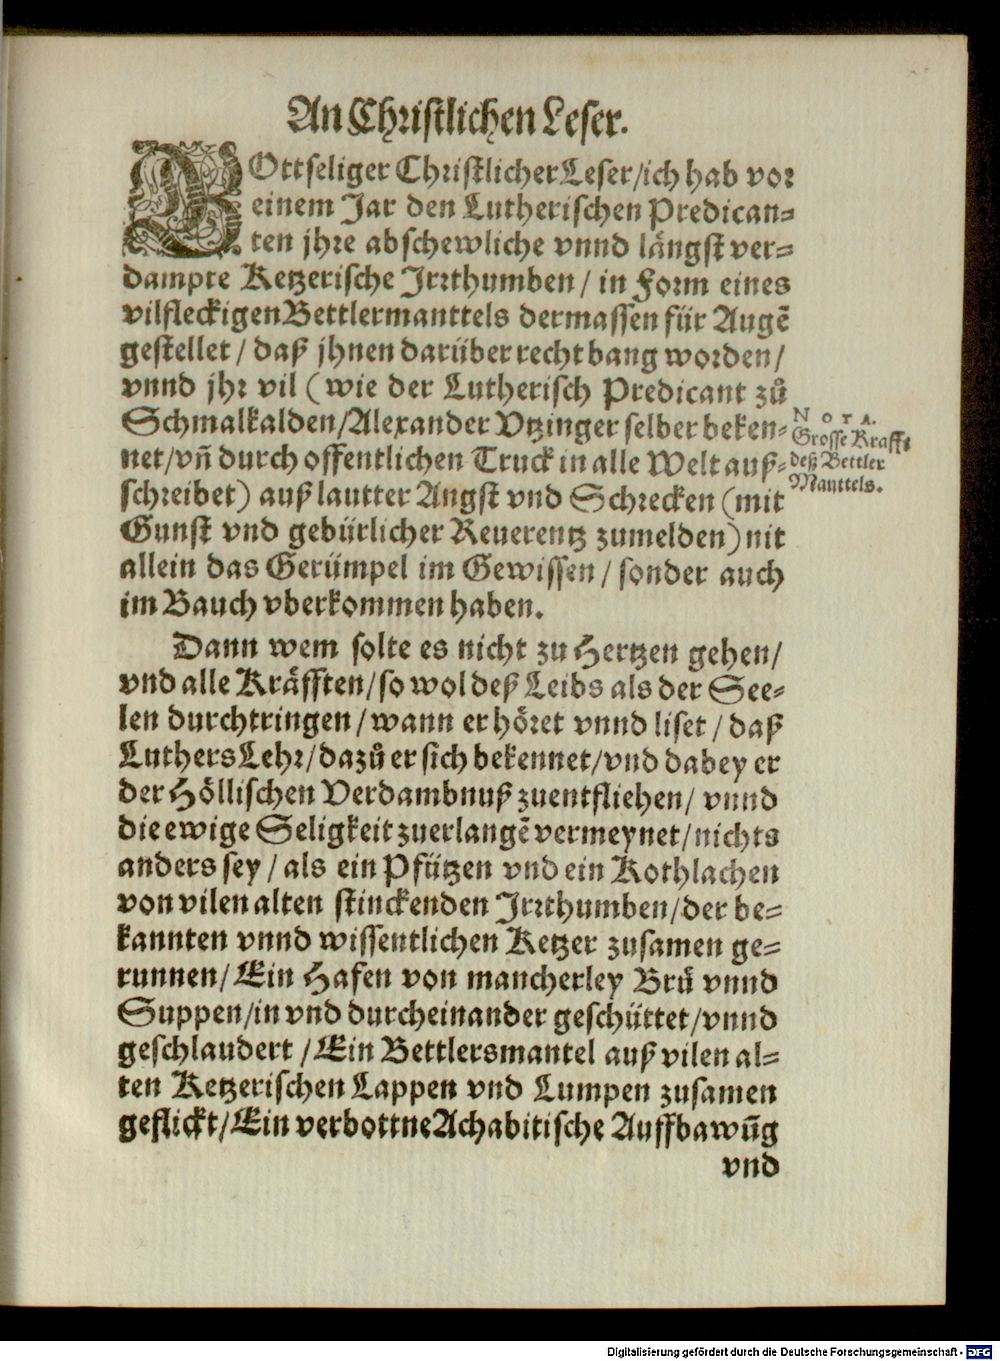 An Christlichen Leser.
GOttseliger Christlicher Leser/ich hab vor
einem Jar den Lutherischen Predican⸗
ten jhre abschewliche vnnd längst ver⸗
dampte Ketzerische Irrthumben / in Form eines
vilfleckigen Bettlermanttels dermassen für Augẽ
gestellet / daß jhnen darüber recht bang worden /
vnnd jhr vil (wie der Lutherisch Predicant zů
Schmalkalden/Alexander Vtzinger selber beken⸗
net/vñ durch offentlichen Truck in alle Welt auß⸗
schreibet) auß lautter Angst vnd Schrecken (mit
Gunst vnd gebürlicher Reuerentz zumelden) nit
allein das Gerümpel im Gewissen / sonder auch
im Bauch vberkommen haben.
NOTA.
Grosse Krafft
deß Bettler
Manttels.
Dann wem solte es nicht zu Hertzen gehen/
vnd alle Kräfften/so wol deß Leibs als der See⸗
len durchtringen / wann er höret vnnd liset / daß
Luthers Lehr/dazů er sich bekennet/vnd dabey er
der Höllischen Verdambnuß zuentfliehen/ vnnd
die ewige Seligkeit zuerlangẽ vermeynet/nichts
anders sey / als ein Pfützen vnd ein Kothlachen
von vilen alten stinckenden Irrthumben/der be⸗
kannten vnnd wissentlichen Ketzer zusamen ge⸗
runnen/ Ein Hafen von mancherley Brü vnnd
Suppen/in vnd durcheinander geschüttet/vnnd
geschlaudert / Ein Bettlersmantel auß vilen al⸗
ten Ketzerischen Lappen vnd Lumpen zusamen
geflickt/Ein verbottne Achabitische Auffbawũg
vnd
Digitalisierung gefördert durch die Deutsche Forschungsgemeinschaft - DFG